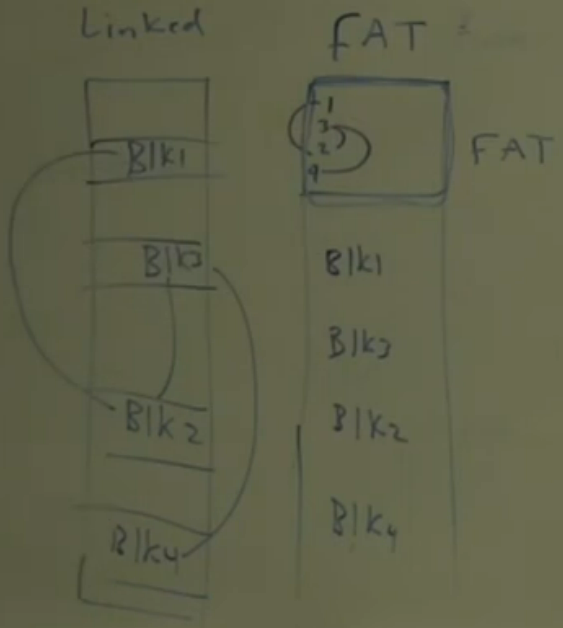 Linked
Blk1
Blk3
Blk2
Blk4
FAT
1
3
2
4
FAT
Blk1
Blk3
Blk2
Blk4